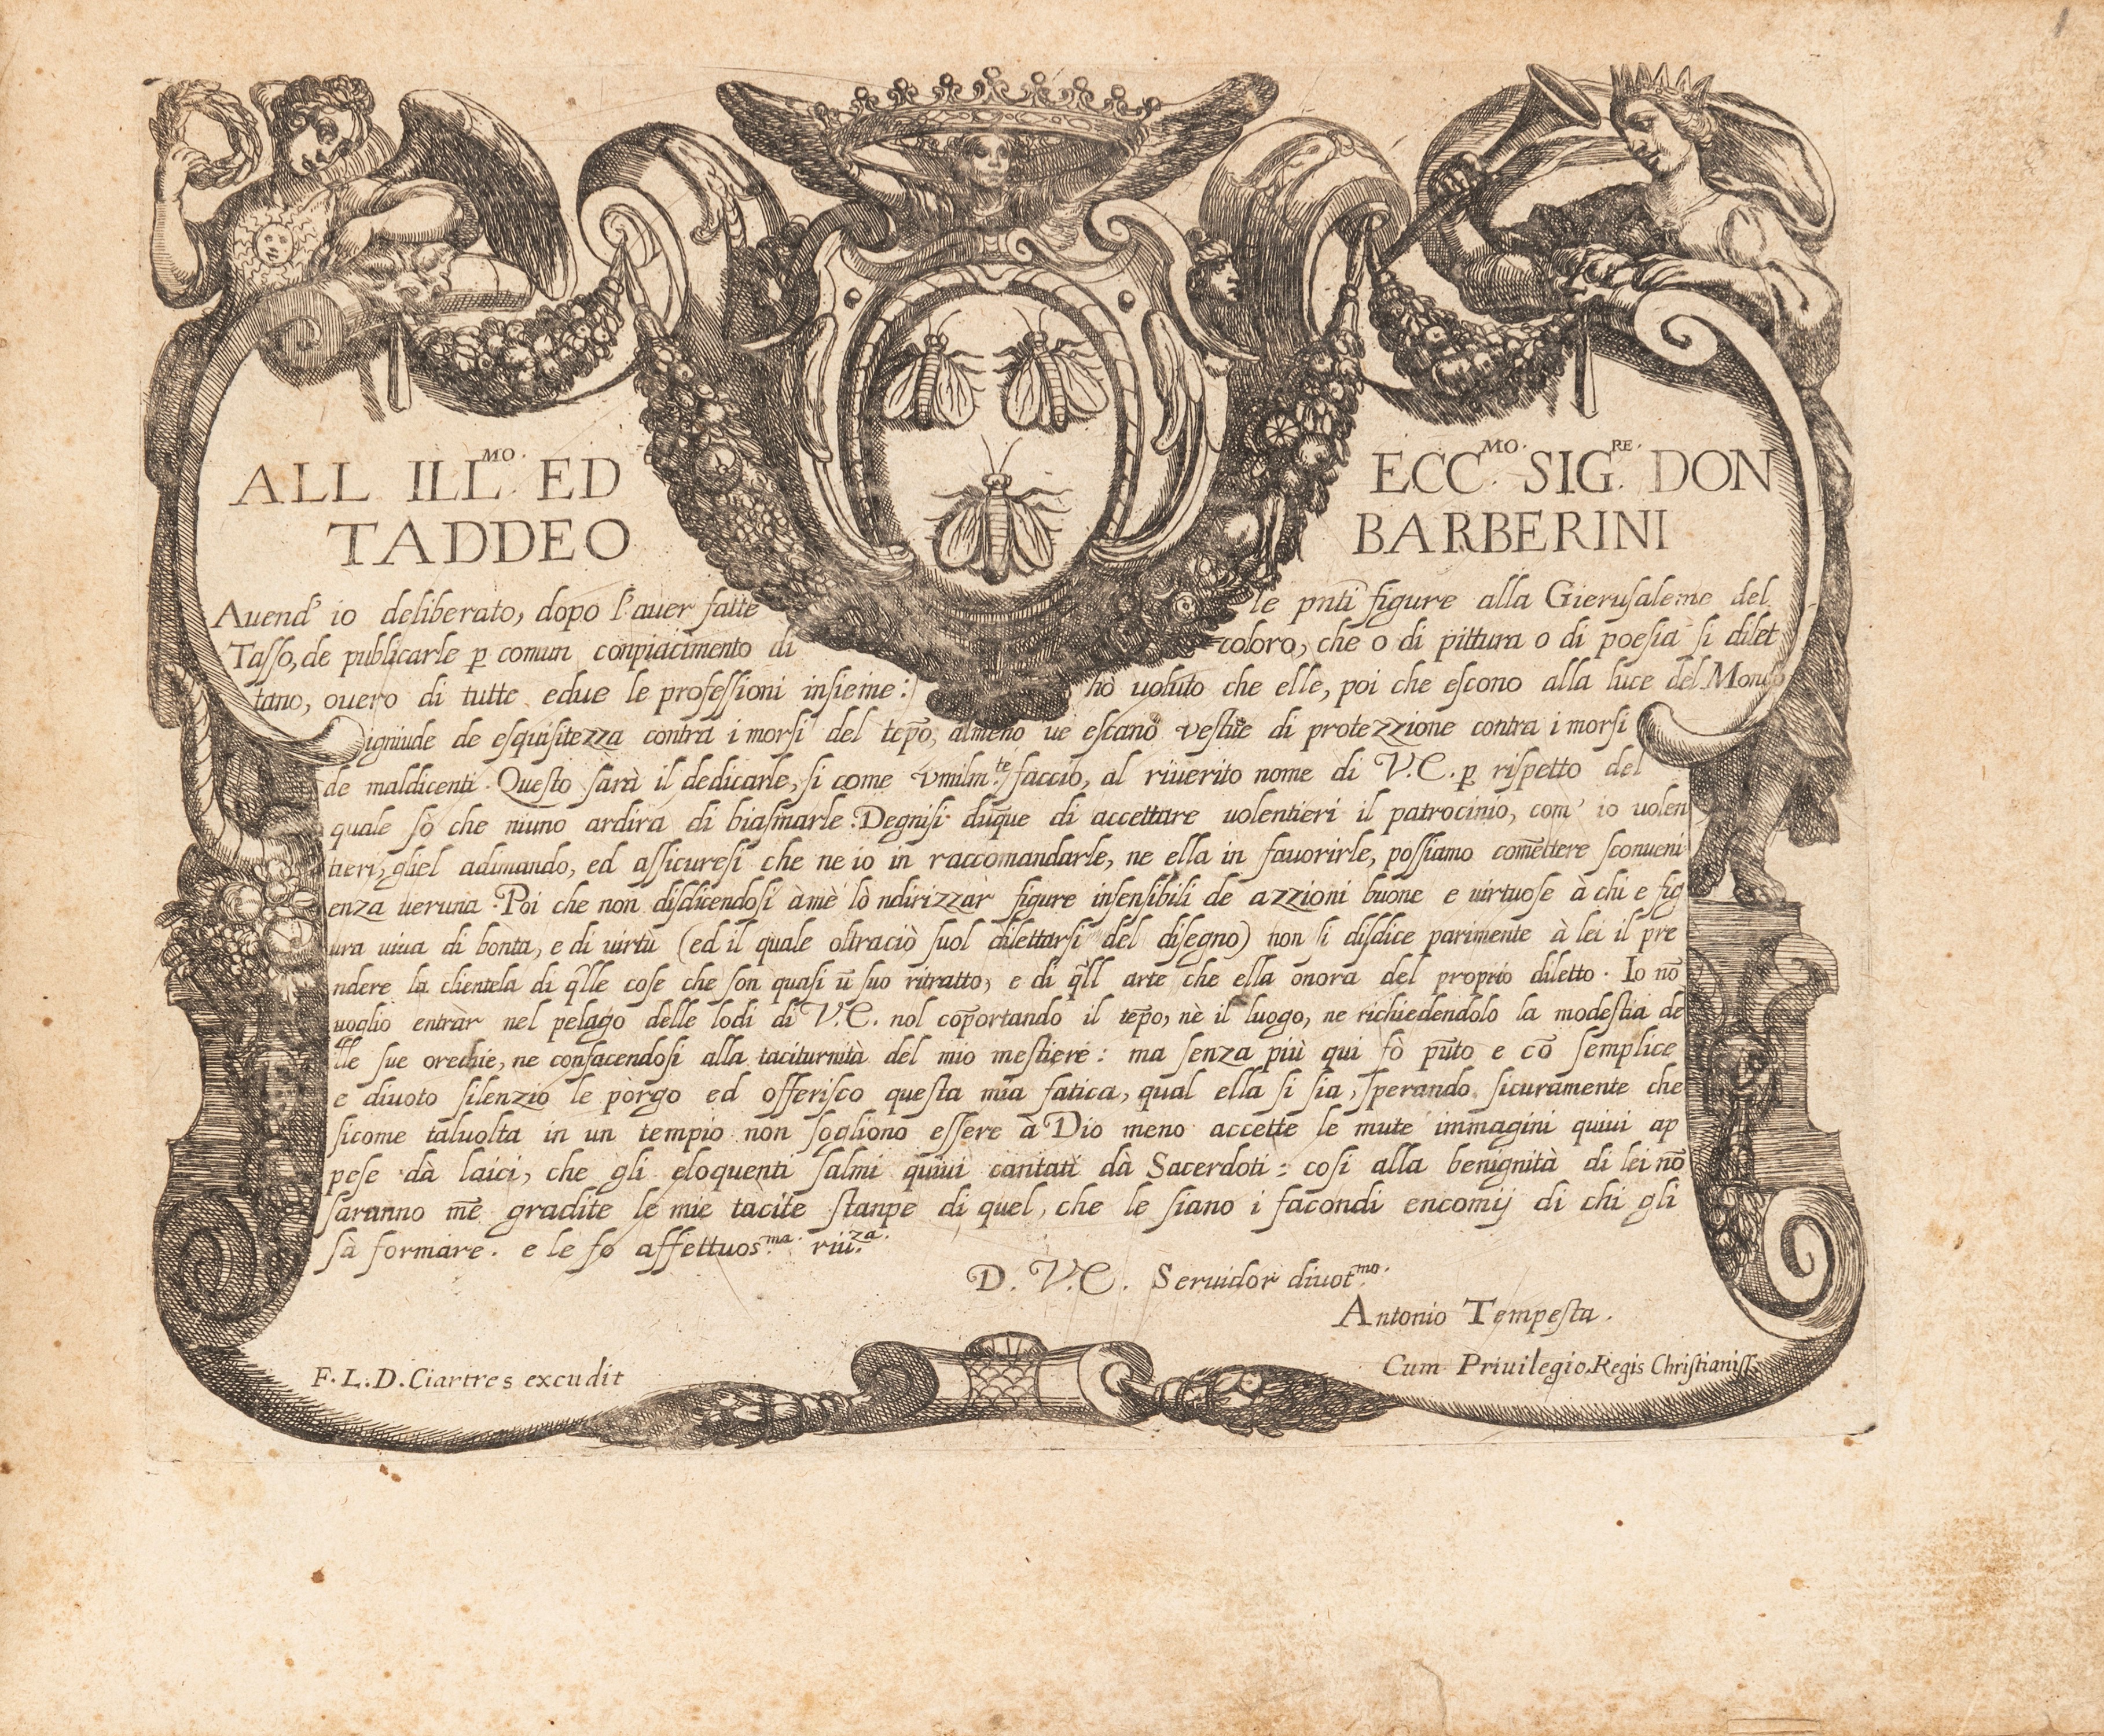 ALL ILL.MO. ED ECC.MO. SIG.RE. DON
TADDEO BARBERINI
Auend' io deliberato, dopo l'auer fatte le pnti figure alla Gierusaleme del
Tasso, de publicarle p comun conpiacimento di coloro, che o di pittura o di poesia si dilet
tano, ouero di tutte edue le professioni insieme: hò uoluto che elle, poi che escono alla luce del Mondo
igniude de esquisitezza contra i morsi del tep̄o, almeno ue escano vestite di protezzione contra i morsi
de maldicenti. Questo sarà il dedicarle, si come vmilm.te faccio, al riuerito nome di V.E. p rispetto del
quale sò che niuno ardira di biasmarle. Degnisi duq̄ue di accettare uolentieri il patrocinio, com' io uolen
tieri, gliel adimando, ed assicuresi che ne io in raccomandarle, ne ella in fauorirle, possiamo com̄ettere sconueni
enza ueruna. Poi che non disdicendosi à mè lò ndirizzar figure insensibili de azzioni buone e uirtuose à chi e fig
ura uiua di bontà, e di uirtù (ed il quale oltraciò suol dilettarsi del disegno) non si disdice parimente à lei il pre
ndere la clientela di q̄lle cose che son quasi ū suo ritratto, e di q̄ll arte che ella onora del proprio diletto. Io nō
uoglio entrar nel pelago delle lodi di V.E. nol cōportando il tep̄o, nè il luogo, ne richiedendolo la modestia de
lle sue orechie, ne confacendosi alla taciturnità del mio mestiere: ma senza più qui fò pūto e cō semplice
e diuoto silenzio le porgo ed offerisco questa mia fatica, qual ella si sia, sperando sicuramente che
sicome taluolta in un tempio non sogliono essere a Dio meno accette le mute immagini quiui ap
pese dà laici, che gli eloquenti salmi quiui cantati dà Sacerdoti: cosi alla benignità di lei nō
saranno mē gradite le mie tacite stanpe di quel, che le siano i facondi encomij di chi gli
sà formare. e le fo affettuos.ma. riu.za.
D. V.E. Seruidor diuot.mo.
Antonio Tempesta.
F.L.D. Ciartres excudit
Cum Priuilegio Regis Christianiss.